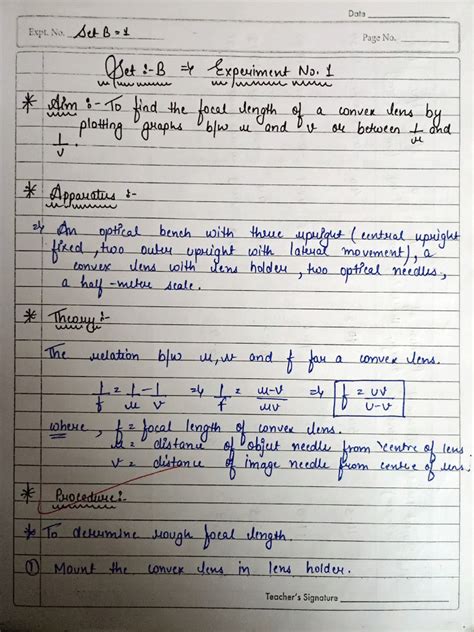 Date
Expt. No. Set B = 1
Page No.
Set :- B ⇒ Experiment No. 1
* Aim :- To find the focal length of a convex lens by
plotting graphs b/w u and v or between 1/u and
1/v.
* Apparatus :-
⇒ An optical bench with three upright (central upright
fixed, two outer upright with lateral movement), a
convex lens with lens holder, two optical needles,
a half-metre scale.
* Theory :-
The relation b/w u, v and f for a convex lens.
1/f = 1/u - 1/v ⇒ 1/f = u-v/uv ⇒ f = uv/u-v
where, f = focal length of convex lens.
u = distance of object needle from centre of lens
v = distance of image needle from centre of lens.
* Procedure :-
* To determine rough focal length.
① Mount the convex lens in lens holder.
Teacher's Signature